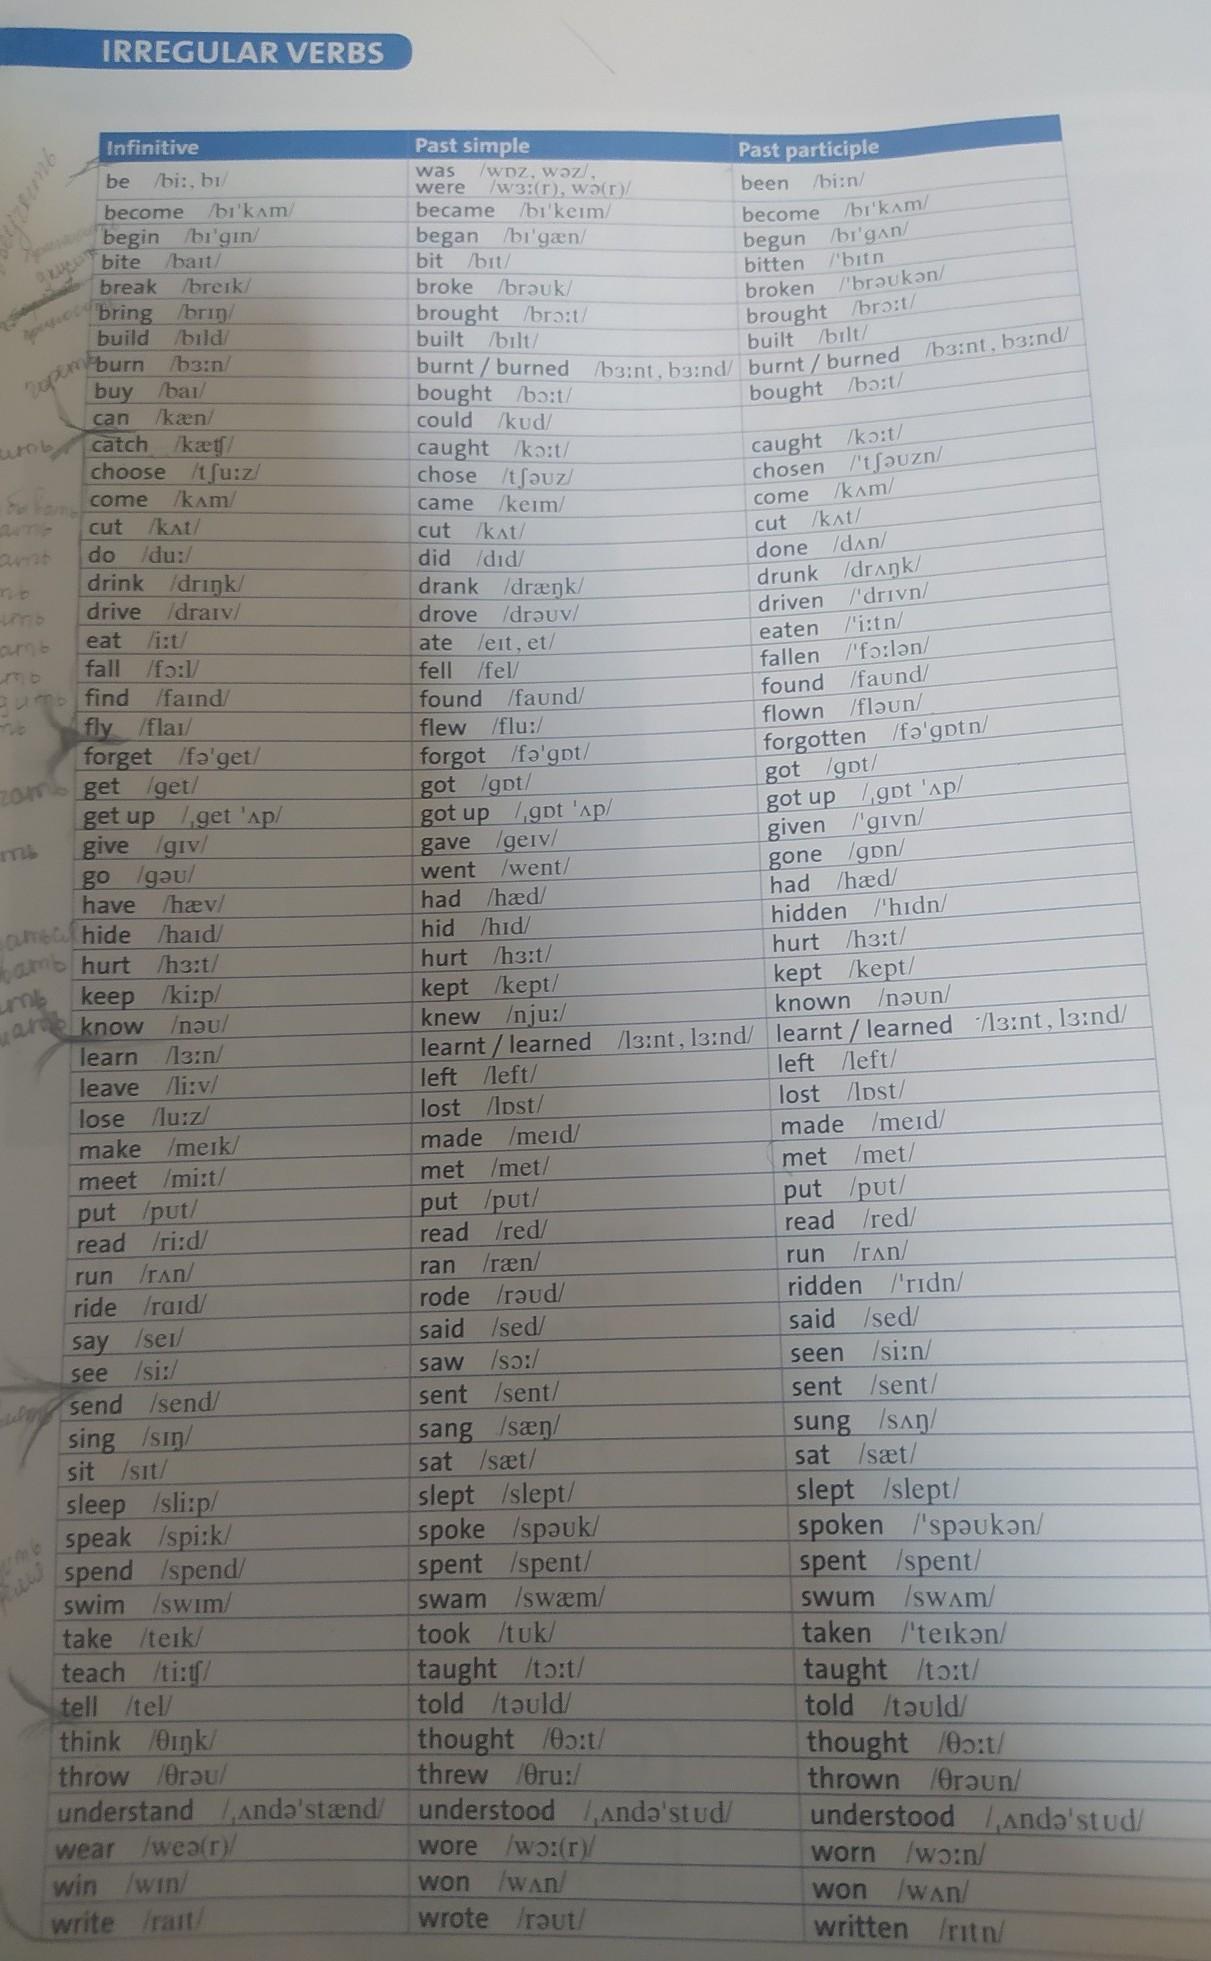 IRREGULAR VERBS
Infinitive Past simple Past participle
be /biː, bɪ/ was /wɒz, wəz/, were /wɜː(r), wə(r)/ been /biːn/
become /bɪ'kʌm/ became /bɪ'keɪm/ become /bɪ'kʌm/
begin /bɪ'gɪn/ began /bɪ'gæn/ begun /bɪ'gʌn/
bite /baɪt/ bit /bɪt/ bitten /'bɪtn
break /breɪk/ broke /brəʊk/ broken /'brəʊkən/
bring /brɪŋ/ brought /brɔːt/ brought /brɔːt/
build /bɪld/ built /bɪlt/ built /bɪlt/
гореть burn /bɜːn/ burnt / burned /bɜːnt, bɜːnd/ burnt / burned /bɜːnt, bɜːnd/
buy /baɪ/ bought /bɔːt/ bought /bɔːt/
can /kæn/ could /kʊd/
catch /kætʃ/ caught /kɔːt/ caught /kɔːt/
choose /tʃuːz/ chose /tʃəʊz/ chosen /'tʃəʊzn/
come /kʌm/ came /keɪm/ come /kʌm/
cut /kʌt/ cut /kʌt/ cut /kʌt/
do /duː/ did /dɪd/ done /dʌn/
drink /drɪŋk/ drank /dræŋk/ drunk /drʌŋk/
drive /draɪv/ drove /drəʊv/ driven /'drɪvn/
eat /iːt/ ate /eɪt, et/ eaten /'iːtn/
fall /fɔːl/ fell /fel/ fallen /'fɔːlən/
find /faɪnd/ found /faʊnd/ found /faʊnd/
fly /flaɪ/ flew /fluː/ flown /fləʊn/
forget /fə'get/ forgot /fə'gɒt/ forgotten /fə'gɒtn/
get /get/ got /gɒt/ got /gɒt/
get up /ˌget 'ʌp/ got up /ˌgɒt 'ʌp/ got up /ˌgɒt 'ʌp/
give /gɪv/ gave /geɪv/ given /'gɪvn/
go /gəʊ/ went /went/ gone /gɒn/
have /hæv/ had /hæd/ had /hæd/
hide /haɪd/ hid /hɪd/ hidden /'hɪdn/
hurt /hɜːt/ hurt /hɜːt/ hurt /hɜːt/
keep /kiːp/ kept /kept/ kept /kept/
know /nəʊ/ knew /njuː/ known /nəʊn/
learn /lɜːn/ learnt / learned /lɜːnt, lɜːnd/ learnt / learned /lɜːnt, lɜːnd/
leave /liːv/ left /left/ left /left/
lose /luːz/ lost /lɒst/ lost /lɒst/
make /meɪk/ made /meɪd/ made /meɪd/
meet /miːt/ met /met/ met /met/
put /pʊt/ put /pʊt/ put /pʊt/
read /riːd/ read /red/ read /red/
run /rʌn/ ran /ræn/ run /rʌn/
ride /raɪd/ rode /rəʊd/ ridden /'rɪdn/
say /seɪ/ said /sed/ said /sed/
see /siː/ saw /sɔː/ seen /siːn/
send /send/ sent /sent/ sent /sent/
sing /sɪŋ/ sang /sæŋ/ sung /sʌŋ/
sit /sɪt/ sat /sæt/ sat /sæt/
sleep /sliːp/ slept /slept/ slept /slept/
speak /spiːk/ spoke /spəʊk/ spoken /'spəʊkən/
spend /spend/ spent /spent/ spent /spent/
swim /swɪm/ swam /swæm/ swum /swʌm/
take /teɪk/ took /tʊk/ taken /'teɪkən/
teach /tiːtʃ/ taught /tɔːt/ taught /tɔːt/
tell /tel/ told /təʊld/ told /təʊld/
think /θɪŋk/ thought /θɔːt/ thought /θɔːt/
throw /θrəʊ/ threw /θruː/ thrown /θrəʊn/
understand /ˌʌndə'stænd/ understood /ˌʌndə'stʊd/ understood /ˌʌndə'stʊd/
wear /weə(r)/ wore /wɔː(r)/ worn /wɔːn/
win /wɪn/ won /wʌn/ won /wʌn/
write /raɪt/ wrote /rəʊt/ written /rɪtn/